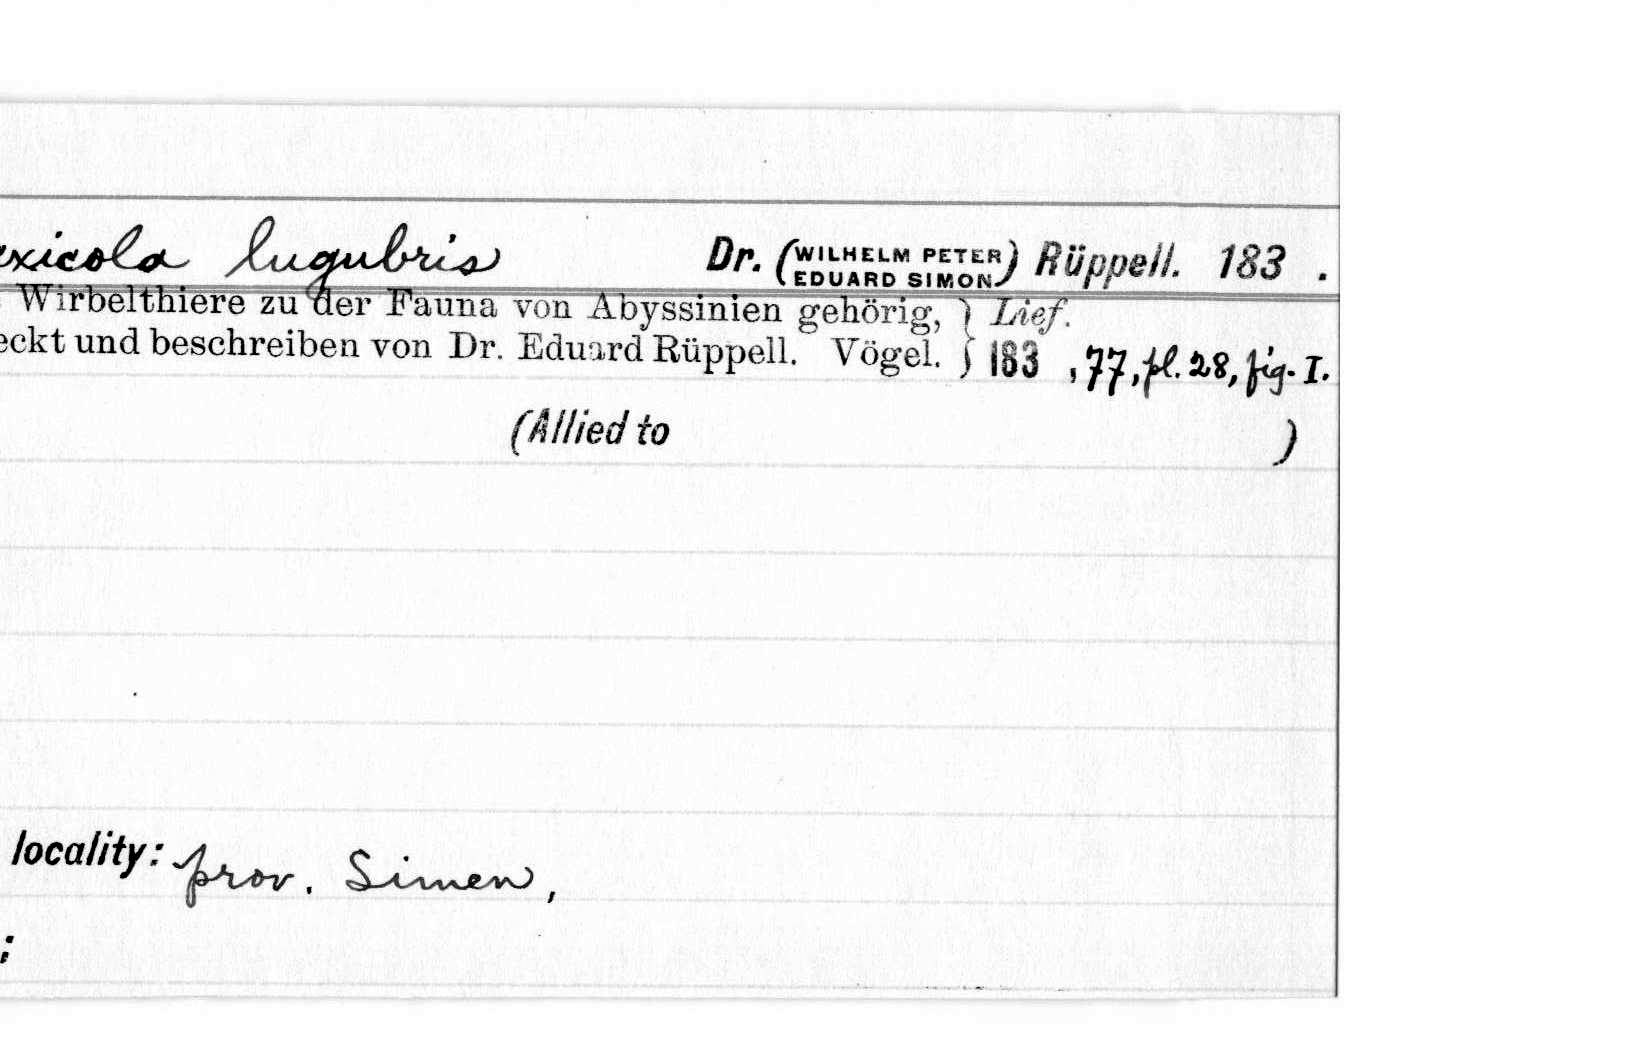 axicola lugubris Dr. (WILHELM PETER EDUARD SIMON) Rüppell. 183 .
Wirbelthiere zu der Fauna von Abyssinien gehörig, } Lief.
eckt und beschreiben von Dr. Eduard Rüppell. Vögel. } 183 , 77, pl. 28, fig. I.
(Allied to )
locality: prov. Simen,
;